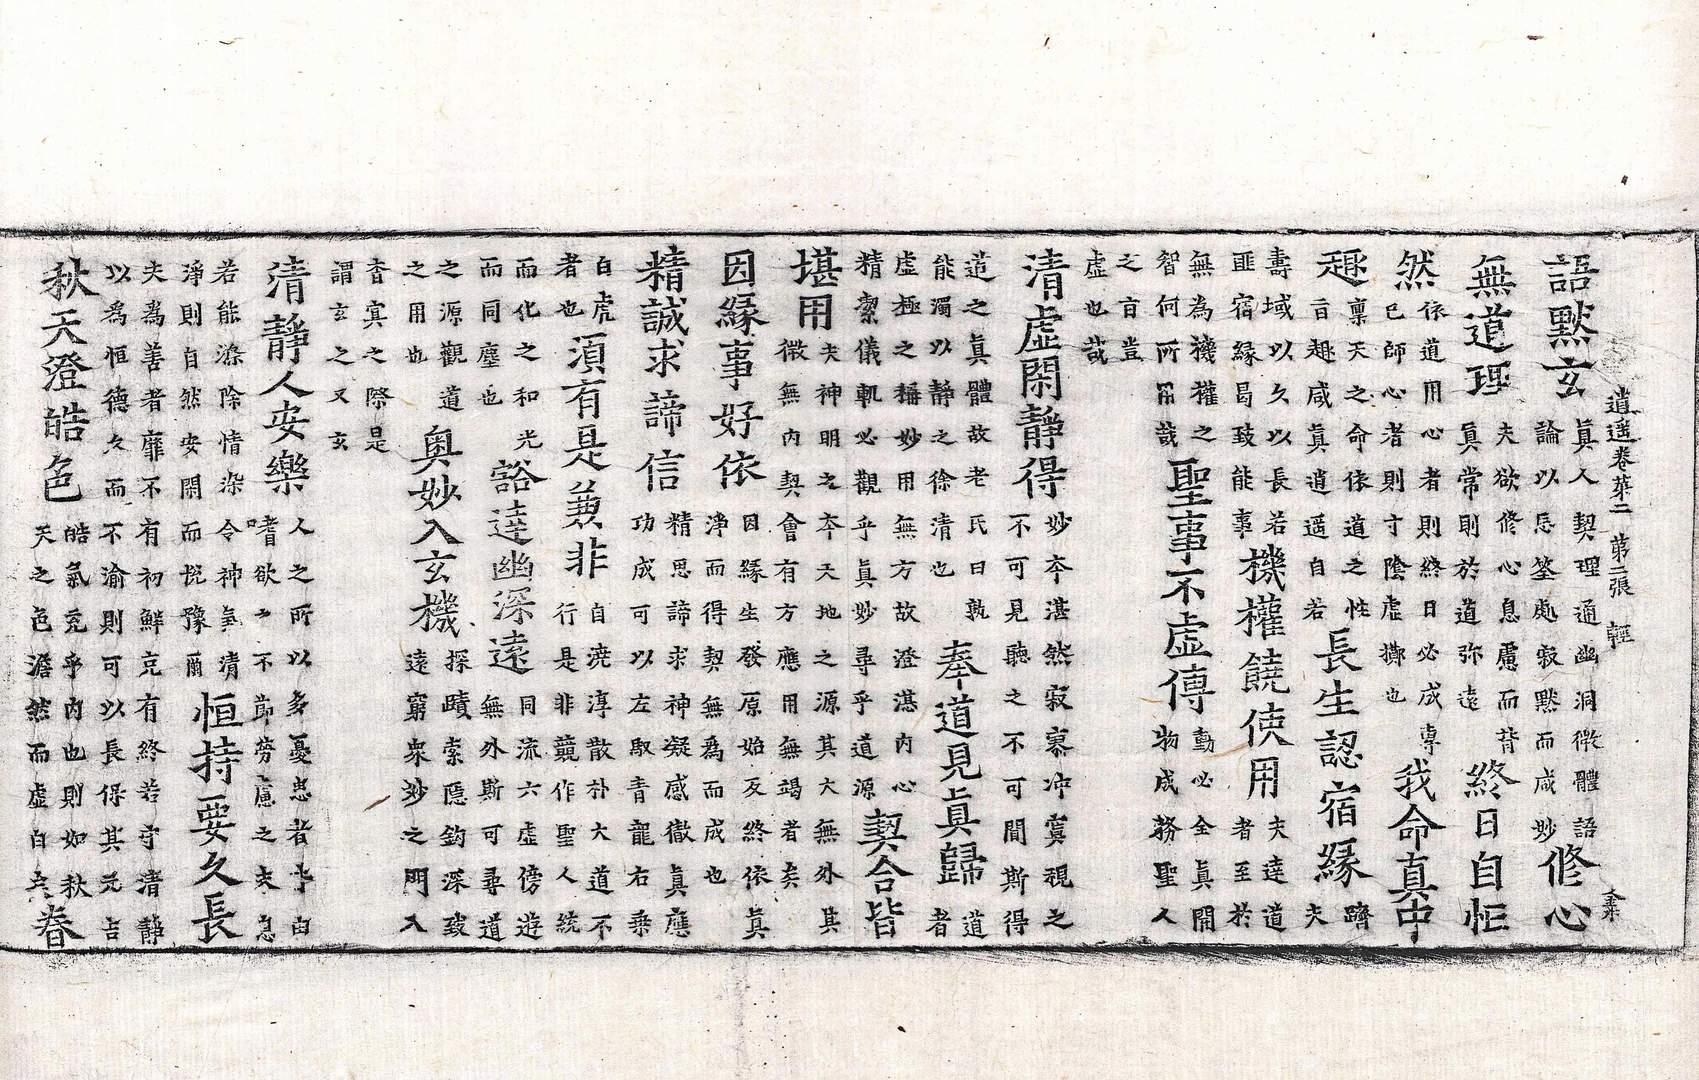 逍遥卷第二 第二張 輕
語默玄真人契理通幽洞微體語論以忘筌處寂默而咸妙修心
無道理夫欲修心息慮而背真常則於道弥遠終日自忙
然依道用心者則終日必成專已師心者則寸陰虛擲也我命真中
趣稟天之命依道之性旨趣咸真逍遥自若長生認宿緣躋夫
壽域以久以長若匪宿緣曷致能事機權饒使用夫達道者至於
無為機權之智何所用哉聖事不虛傳動必全真開物成務聖人
之旨豈虛也哉
清虛閑靜得妙本湛然寂寥冲寞視之不可見聽之不可聞斯得
道之真體故老氏曰孰能濁以靜之徐清也奉道見真歸道者
虛極之稱妙用無方故澄湛內心精絜儀軌必觀乎真妙尋乎道源契合皆
堪用夫神明之本天地之源其大無外其微無內契會有方應用無竭者矣
因緣事好依因緣生發原始反終依真淨而得契無為而成也
精誠求諦信精思諦求神凝感徹真應功成可以左取青龍右乘
白虎者也須有是兼非自澆淳散朴大道不行是非競作聖人統
而化之和光而同塵也豁達幽深遠同流六虛傍遊無外斯可尋道
之源觀道之用也奧妙入玄機探賾索隱鈎深致遠窮衆妙之門入
杳冥之際是謂玄之又玄
清靜人安樂人之所以多憂患者由嗜欲之不節勞慮之急
若能滌除情染令神氣清淨則自然安閑而悅豫爾恒持要久長
夫為善者靡不有初鮮克有終若守清靜以為恒德久而不渝則可以長保其元吉
秋天澄皓色皓氣充乎內也則如秋天之色澹然而虛白矣春